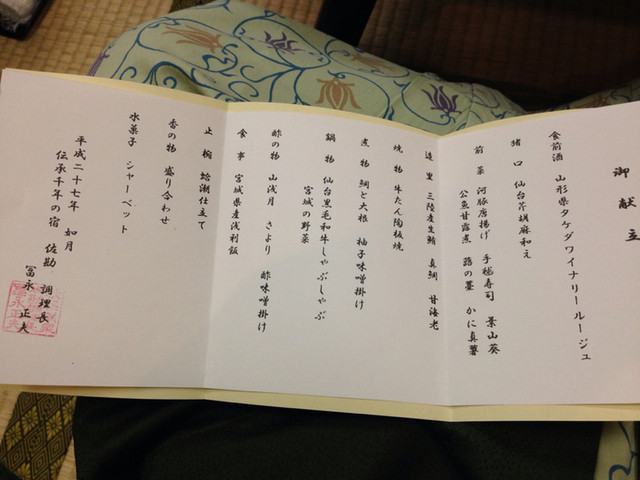 御献立
食前酒 山形県タケダワイナリールージュ
猪口 仙台芹胡麻和え
前菜 河豚唐揚げ 手毬寿司 葉山葵
公魚甘露煮 蕗の薹 かに真薯
造里 三陸産生鮪 真鯛 甘海老
焼物 牛たん陶板焼
煮物 鯛と大根 柚子味噌掛け
鍋物 仙台黒毛和牛しゃぶしゃぶ
宮城の野菜
酢の物 山浅月 さより 酢味噌掛け
食事 宮城県産浅利飯
止椀 蛤潮仕立て
香の物 盛り合わせ
水菓子 シャーベット
平成二十七年 如月
伝承千年の宿 佐勘 調理長
冨永 正夫